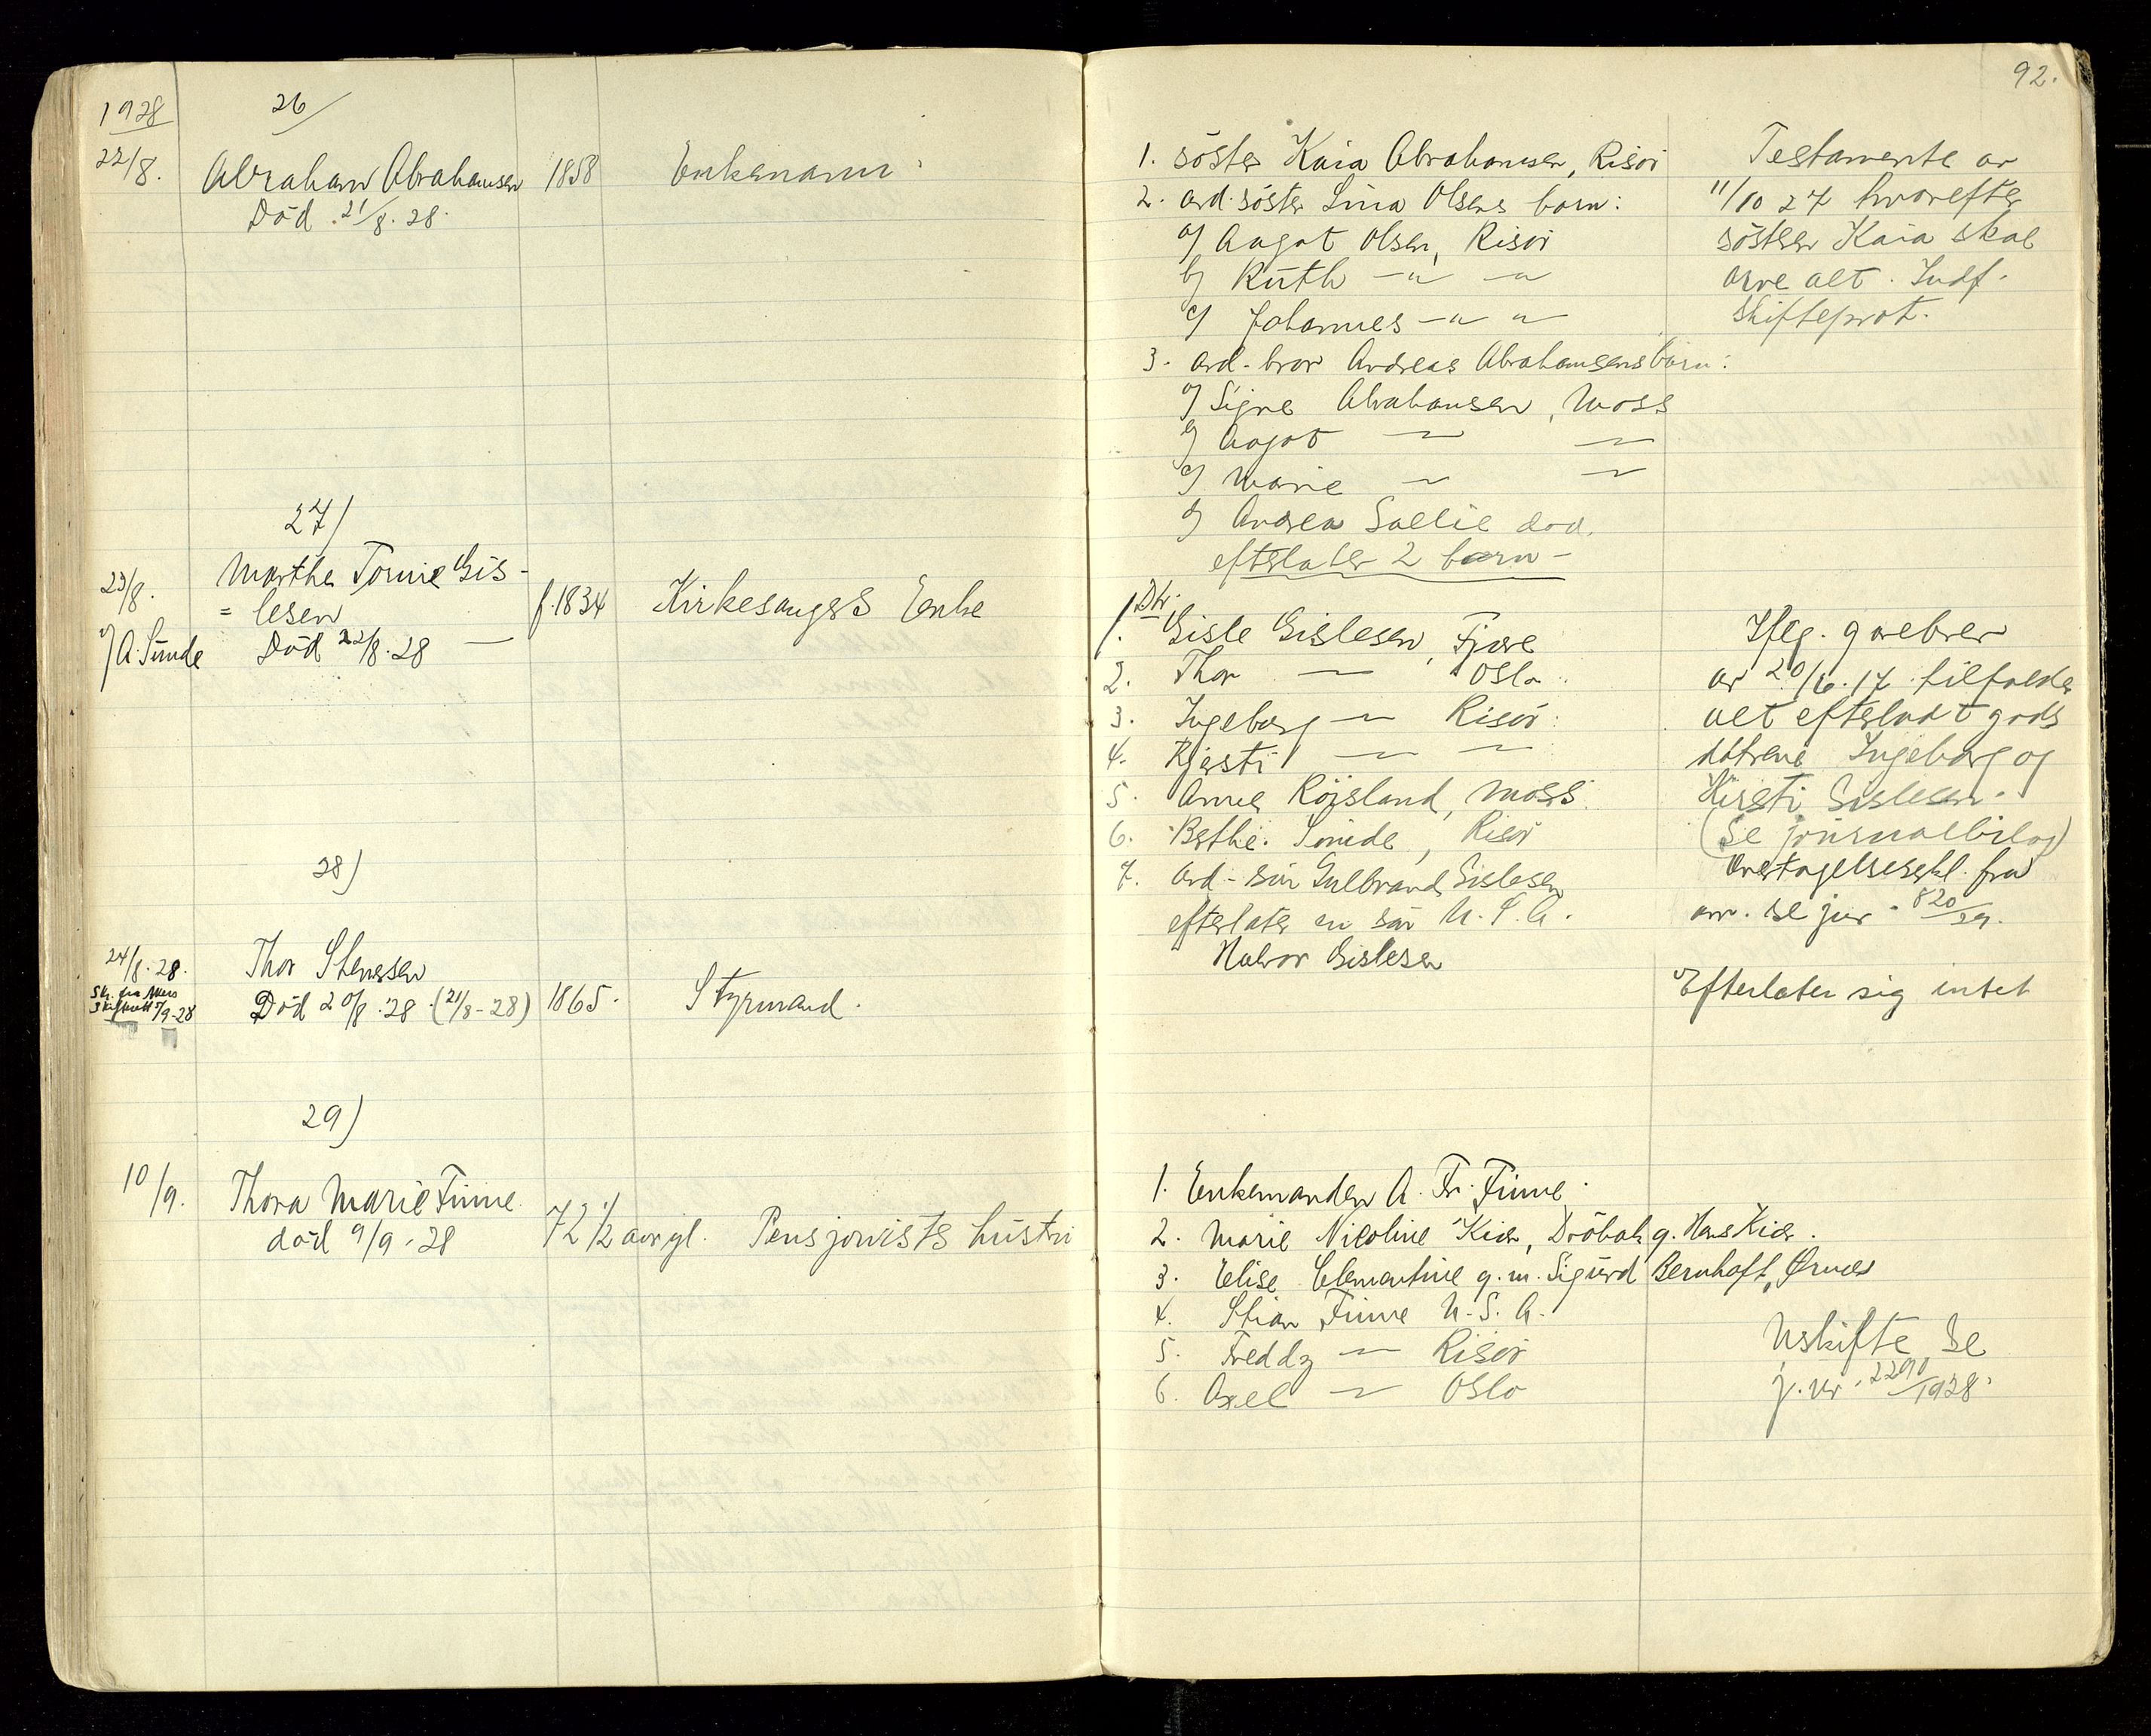 1928
26/
22/8.
Abraham Abrahamsen
1858
Enkemann
Död 21/8. 28.
27)
Marthe Tomine Gis-
23/8.
= lesen
f. 1834
Kirkesangers Enke
v/ A. Sunde
Död 22/8. 28 —
28)
24/8. 28.
Thor Stenersen
Sk. fra Akers
Skifterett 7/9-28
Död 20/8. 28. (21/8-28)
1865.
Styrmand.
29)
10/9.
Thora Marie Finne.
död 9/9. 28
72 1/2 aar gl.
Pensjonists hustru
92.
1. söster Kaia Abrahamsen, Risör
2. avd. söster Lina Olsens barn:
a) Aagot Olsen, Risör
b) Ruth —"— —"
c) Johannes —"— "—
3. avd. bror Andreas Abrahamsens barn:
a) Signe Abrahamsen, Moss
b) Aagot — —
c) Marie — —
d) Andrea Sællie död.
efterlater 2 barn —
Testamente av
11/10 27 hvorefter
söster Kaia skal
arve alt. Indf.
Skifteprot.
1. Gisle Gislesen, Fjære
2. Thor — Oslo.
3. Ingeborg — Risör.
4. Kjersti — —
5. Anne Röisland, Moss.
6. Berthe Sunde, Risör
7. Avd. sön Gulbrand Gislesen
efterlater en sön U. S. A.
Halvor Gislesen
Iflg. gavebrev
av 20/6. 17 tilfalder
alt efterladt gods
dötrene Ingeborg og
Kirsti Gislesen.
(Se journalbilag)
Overtagelseserkl. fra
arv. se jur. 820/29.
Efterlater sig intet
1. Enkemanden A. Fr. Finne.
2. Marie Nicoline Kiær, Dröbak g. Hans Kiær.
3. Elise Clementine g. m. Sigurd Bernhoft, Ørnes
4. Stian Finne U. S. A.
5. Freddy — Risör
6. Axel — Oslo
Uskifte Se
j. nr. 2290/1928.